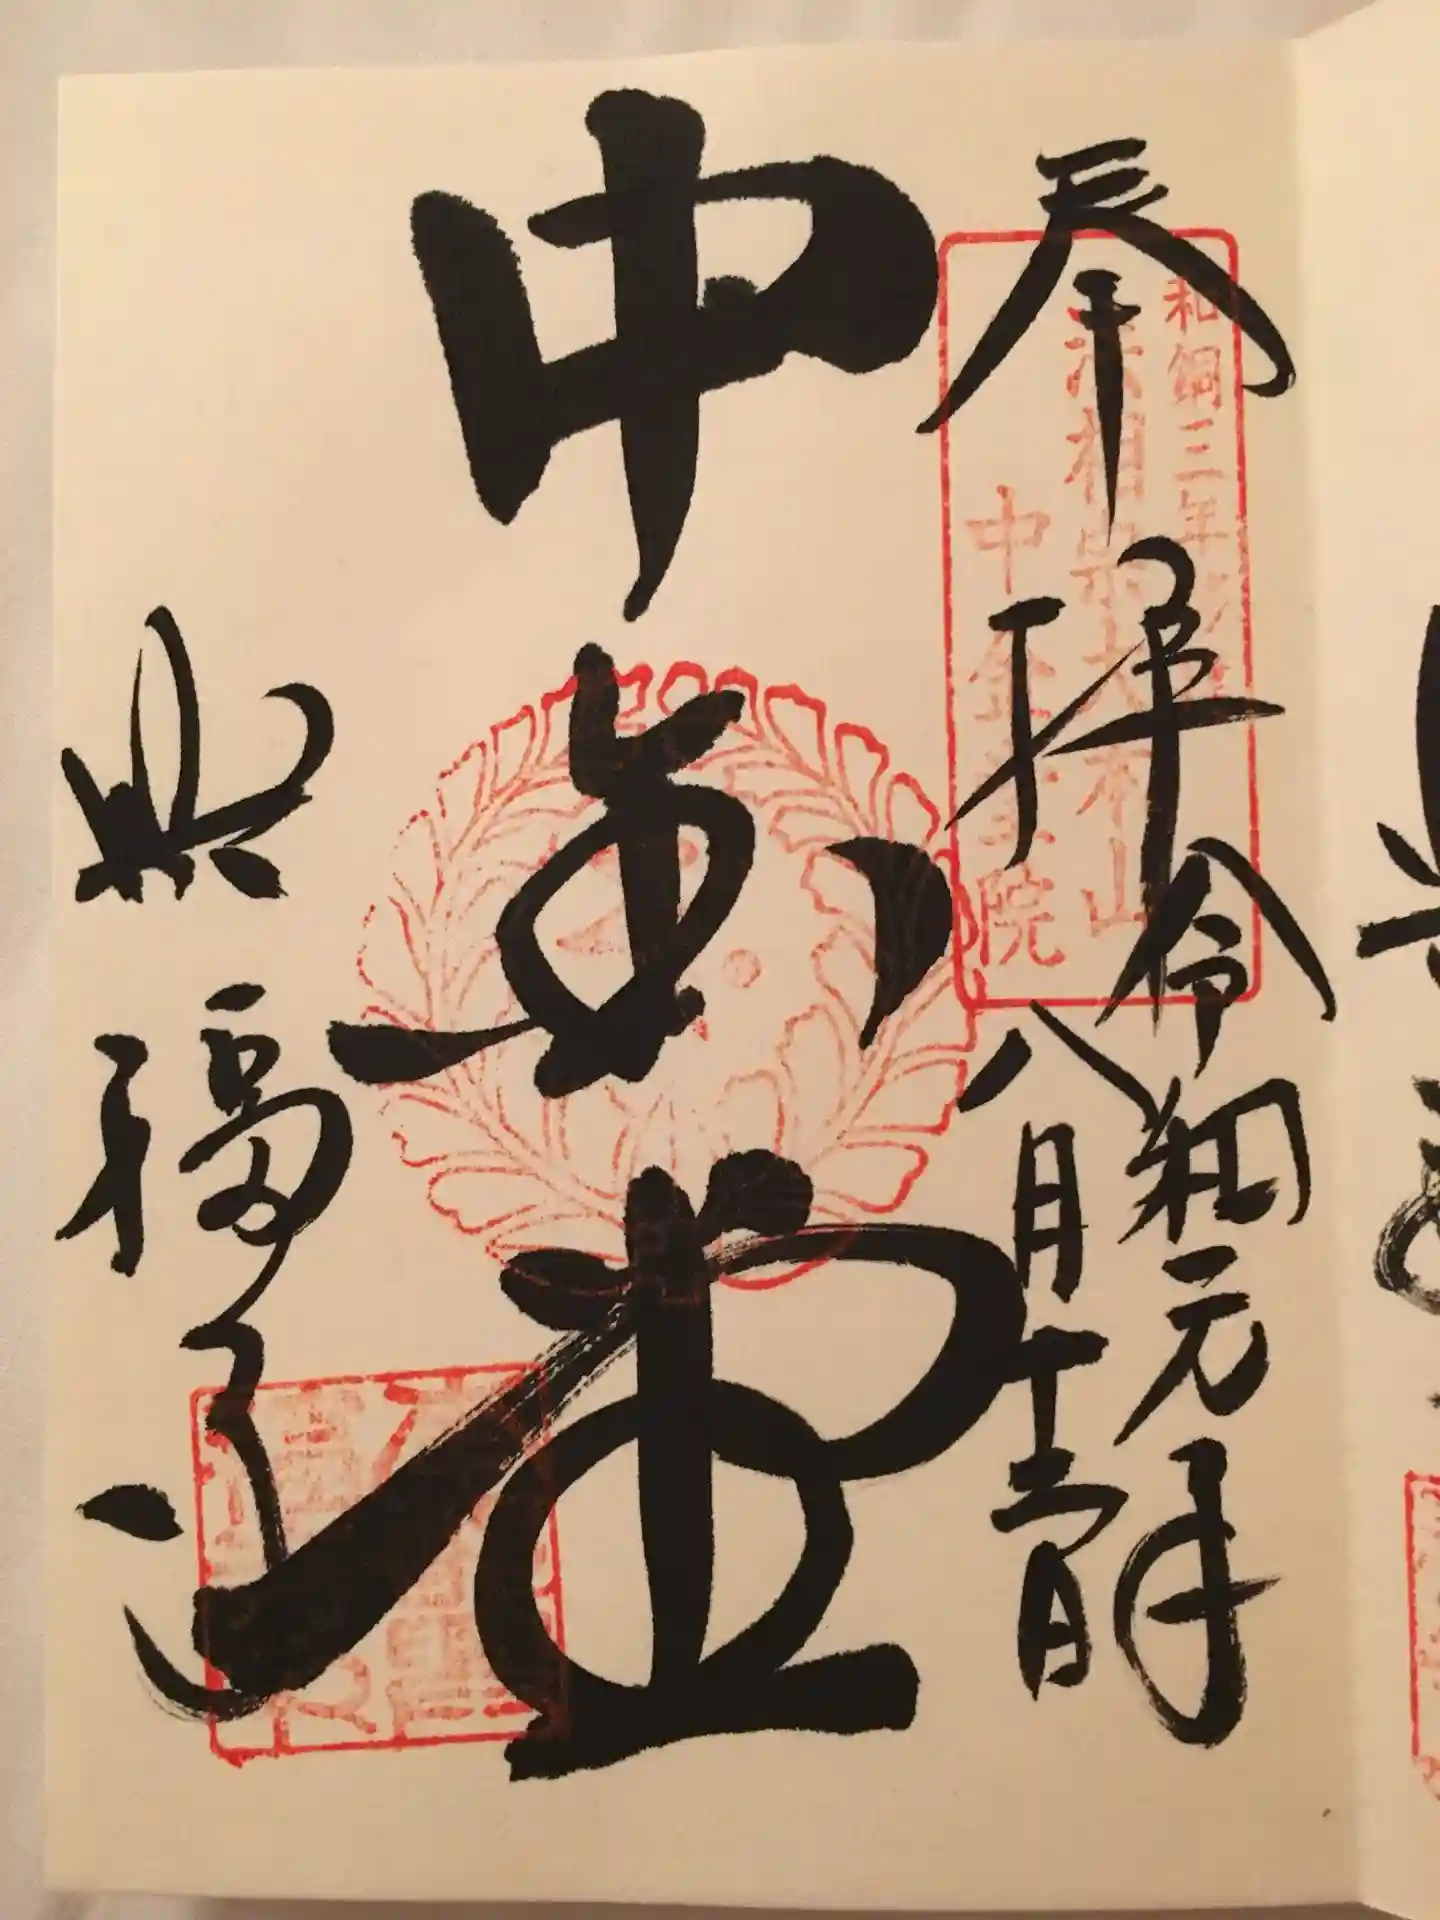 奉拝
令和元年
八月十日
和銅三年
法相宗大本山
中金堂院
中金堂
興福寺